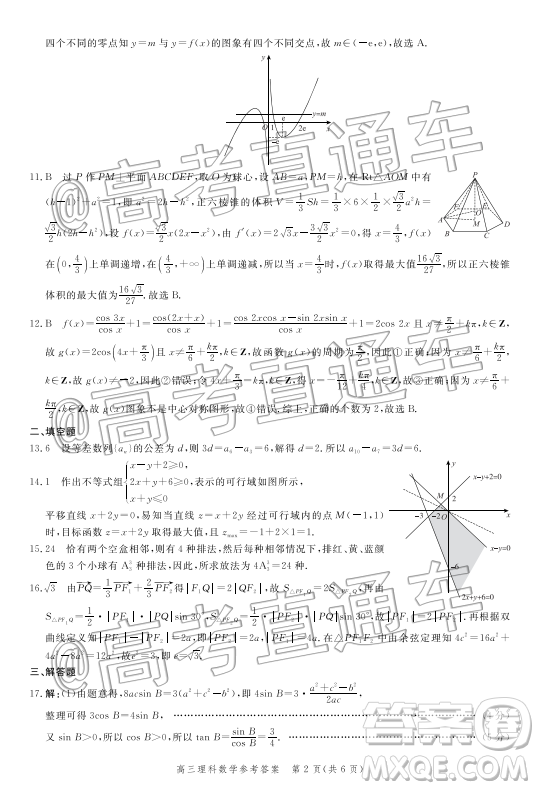 四个不同的零点知 y=m 与 y=f(x)的图象有四个不同交点,故 m∈(-e,e),故选 A.
y
y=m
O 1 e 2e x
11. B 过 P 作 PM⊥平面 ABCDEF,取 O 为球心,设 AB=a,PM=h,在 Rt△AOM 中有
(h-1)²+a²=1,即 a²=2h-h²,正六棱锥的体积 V=1/3 Sh=1/3×6×1/2×√3/2 a²h=
√3/2 h(2h-h²),设 f(x)=√3/2 x(2x-x²),由 f′(x)=2√3x-3√3/2 x²=0,得 x=4/3,f(x)
在(0,4/3)上单调递增,在(4/3,+∞)上单调递减,所以当 x=4/3时,f(x)取得最大值16√3/27,所以正六棱锥
体积的最大值为16√3/27.故选 B.
P
O
A
M
D
B
C
12. B f(x)=cos 3x/cos x+1=cos(2x+x)/cos x+1=cos 2xcos x-sin 2xsin x/cos x+1=2cos 2x 且 x≠π/2+kπ,k∈Z,
故 g(x)=2cos(4x+π/3)且 x≠π/6+kπ/2,k∈Z,故函数 g(x)的周期为π/2,因此①正确,因为 x≠π/6+kπ/2,
k∈Z,故 g(x)≠-2,因此②错误,令4x+π/3=kπ,得 x=-π/12+kπ/4,k∈Z,故③正确;因为 x≠π/6+
kπ/2,k∈Z,故 g(x)图象不是中心对称图形,故④错误.综上,正确的个数为 2,故选 B.
二、填空题
13. 6 设等差数列{aₙ}的公差为 d,则 3d=a₆-a₃=6,解得 d=2.所以 a₁₀-a₇=3d=6.
14. 1 作出不等式组{x-y+2≥0,
2x+y+6≥0,表示的可行域如图所示,
x+y≤0
平移直线 x+2y=0,易知当直线 z=x+2y 经过可行域内的点 M(-1,1)
时,目标函数 z=x+2y 取得最大值,且 zmax=-1+2×1=1.
y
x-y+2=0
M 2
-3 -2 O x
x-y=0
-6
2x+y+6=0
15. 24 恰有两个空盒相邻,则有 4 种排法,然后每种相邻情况下,排红、黄、蓝颜
色的 3 个小球有 A₃³ 种排法,因此,所求放法为 4A₃³=24 种.
16. √3 由 PQ=1/3 PF₁+2/3 PF₂ 得|F₁Q|=2|QF₂|,故 S△PF₁Q=2S△PF₂Q,再由
S△PF₁Q=1/2·|PF₁|·|PQ|sin 30°,S△PF₂Q=1/2·|PF₂|·|PQ|sin 30°,故|PF₁|=2|PF₂|.再根据双
曲线定义知|PF₁|-|PF₂|=2a,即|PF₂|=2a,|PF₁|=4a.在△PF₁F₂ 中由余弦定理知 4c²=16a²+
4a²-8a²=12a²,故 e²=3,即 e=√3.
三、解答题
17. 解:(1)由题意得,8acsin B=3(a²+c²-b²),即 4sin B=3·a²+c²-b²/2ac,
整理可得 3cos B=4sin B,
又 sin B>0,所以 cos B>0,所以 tan B=sin B/cos B=3/4.
高三理科数学参考答案 第 2 页(共 6 页)
@高考直通车
@高考直通车
@高考直通车
答案圈
MXQE.COM